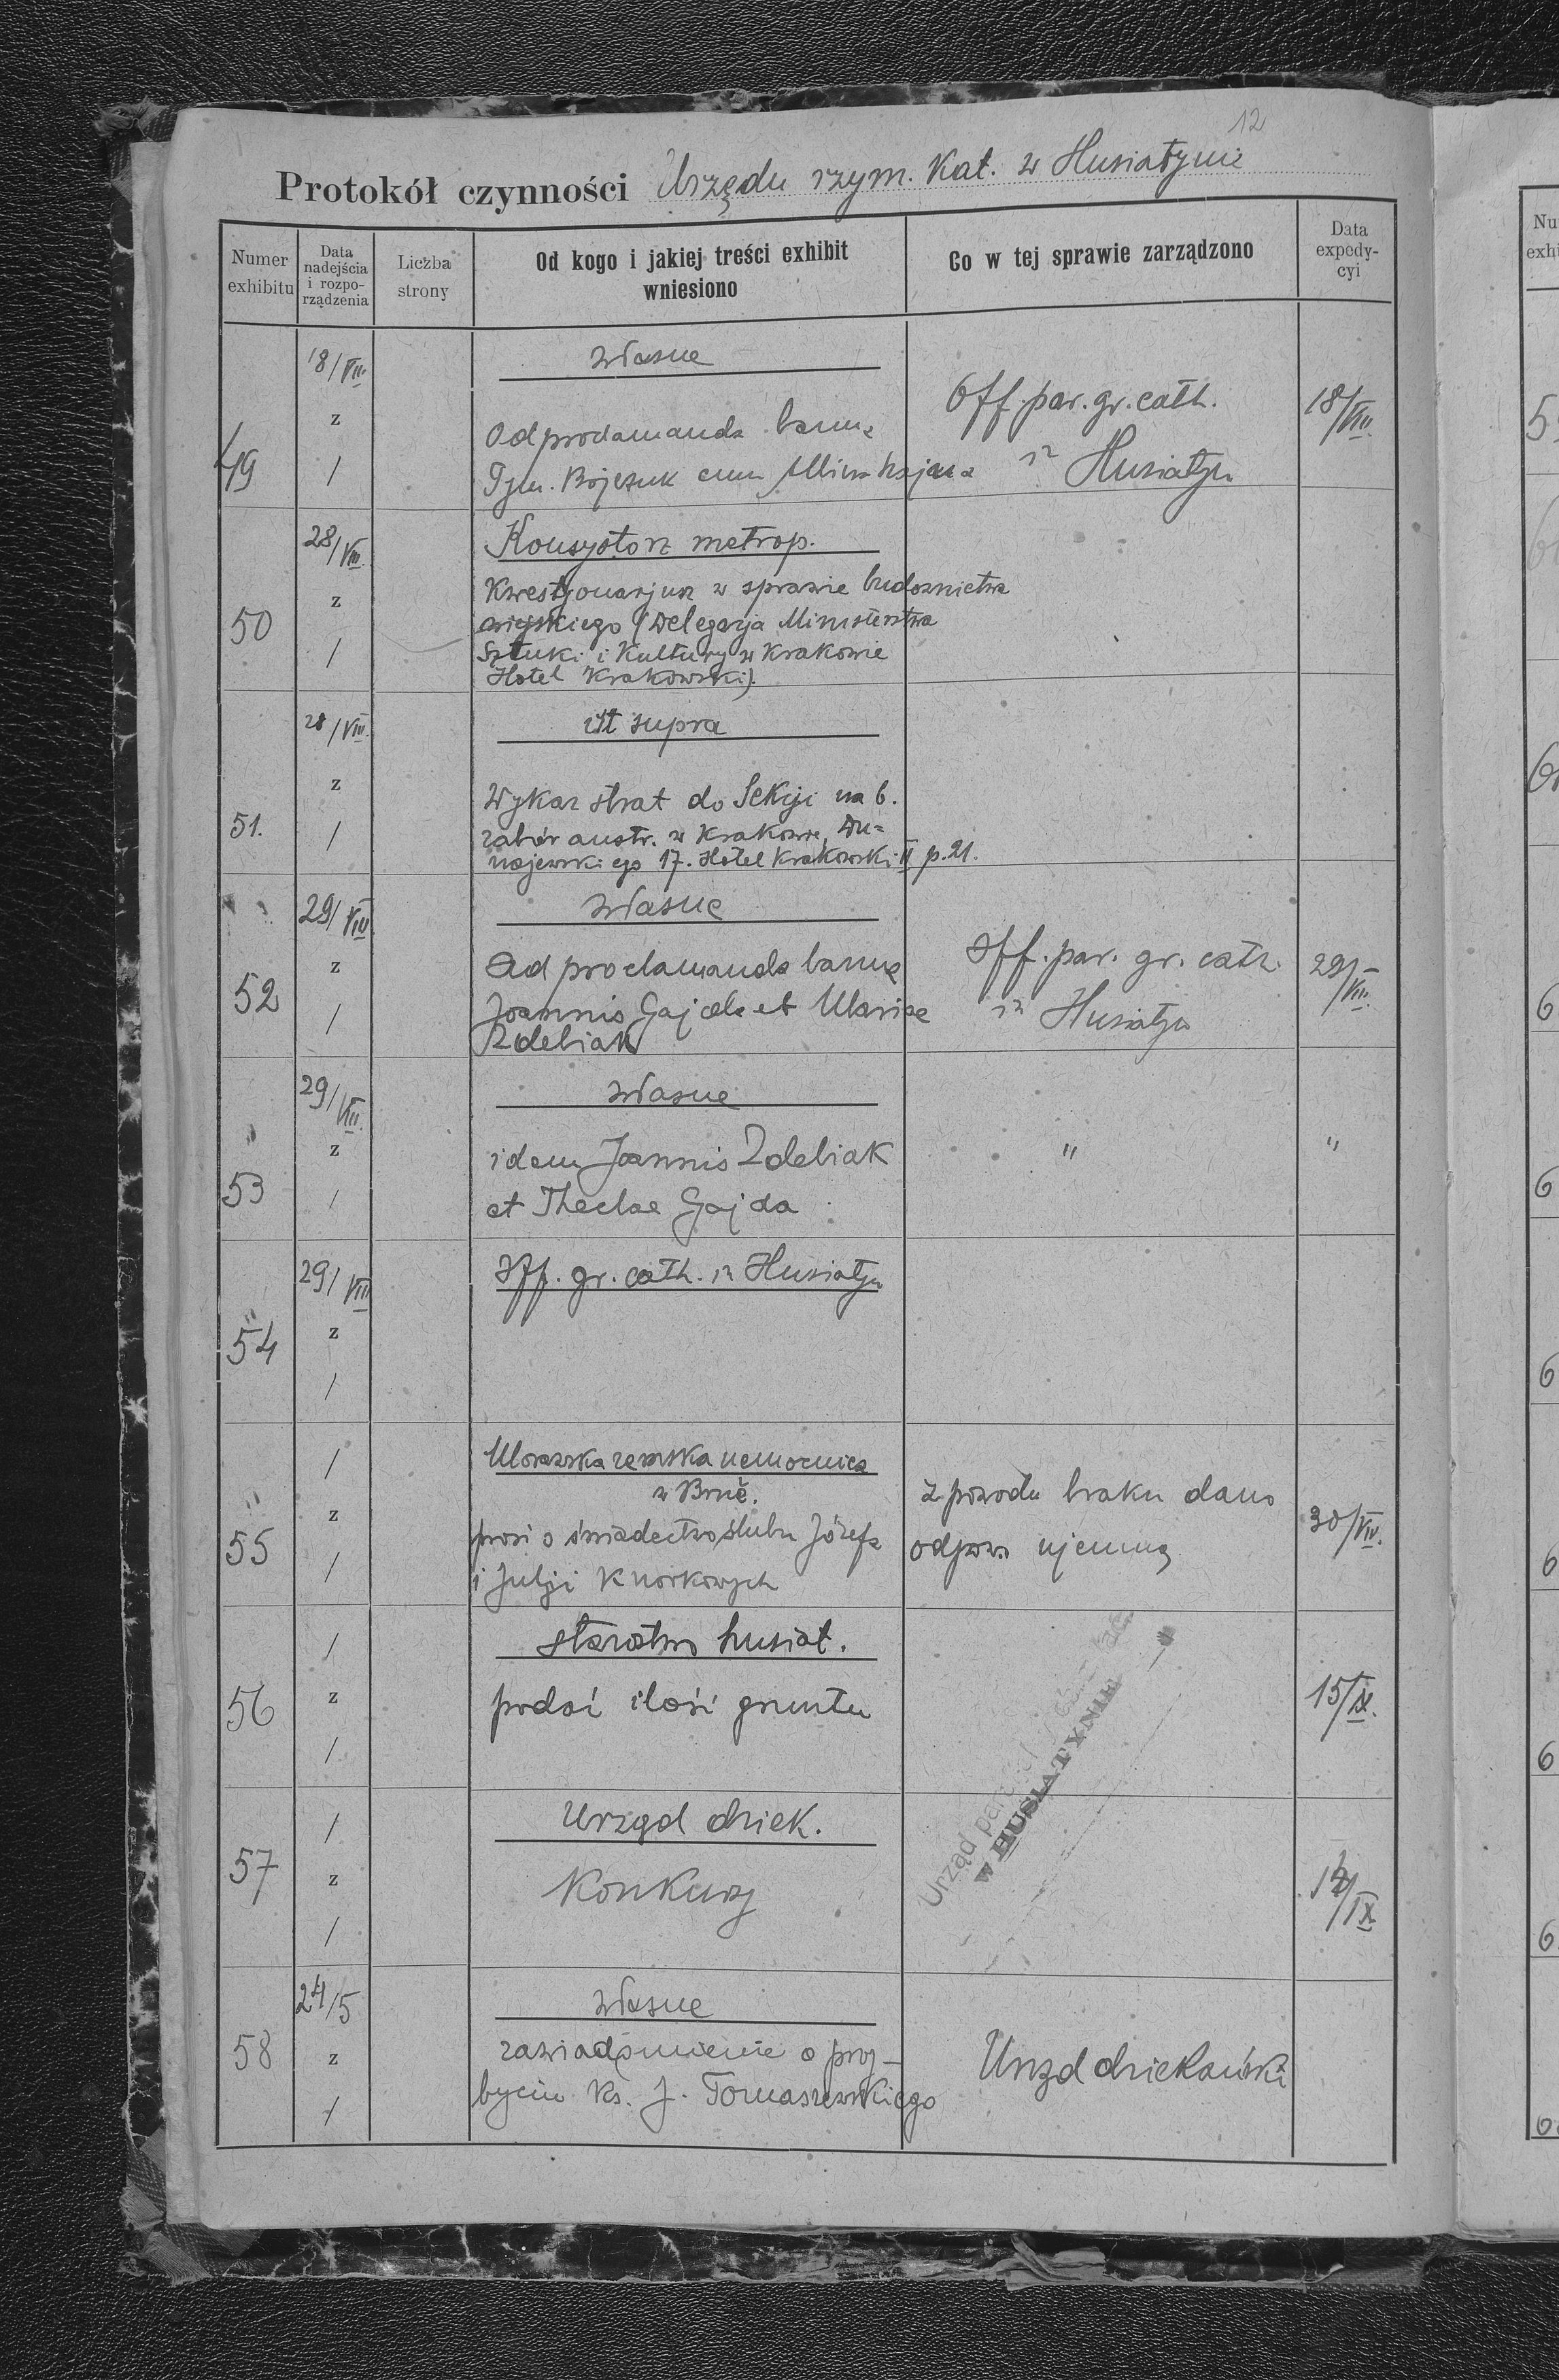 12
Protokół czynności Urzędu rzym. Kat. w Husiatynie
Numer exhibitu
Data nadejścia i rozporządzenia
Liczba strony
Od kogo i jakiej treści exhibit wniesiono
Co w tej sprawie zarządzono
Data expedycyi
49
18/VIII.
z
/
własne
Ad proclamanda banna
Bojczuk cum
Off. par. gr. cath.
in Husiatyn
18/VIII.
50
28/VIII.
z
/
Konsystorz metrop.
Kwestjonarjusz w sprawie budownictwa
wiejskiego (Delegacja Ministerstwa
Sztuki i Kultury w Krakowie
Hotel Krakowski).
51.
28/VIII.
z
/
Ut supra
Wykaz strat do Sekcji na b.
zabór austr. w Krakowie, Du=
najewskiego 17. Hotel Krakowski II p. 21.
52
29/VIII
z
/
własne
Ad proclamanda banna
Joannis Gajda et Mariae
Zdebiak
Off. par. gr. cath.
in Husiatyn
29/VIII.
53
29/VIII.
z
/
własne
idem Joannis Zdebiak
et Theclae Gajda
"
"
54
29/VIII
z
/
Off. gr. cath. in Husiatyn
55
/
z
/
Moravska zemska nemocnice
w Brně.
prosi o świadectwo ślubu Józefa
i Julji Knorkowych
Z powodu braku dano
odpow. ujemną
30/VIII.
56
/
z
/
starostwo husiat.
podać ilość gruntu
15/IX.
57
/
z
/
Urząd dziek.
Konkursy
/IX
Urząd
w HUSIATYNIE
58
24/5
z
/
własne
zawiadomienie o przy-
byciu Ks. J. Tomaszewskiego
Urząd dziekański